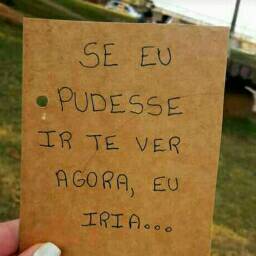 SE EU
PUDESSE
IR TE VER
AGORA, EU
IRIA...